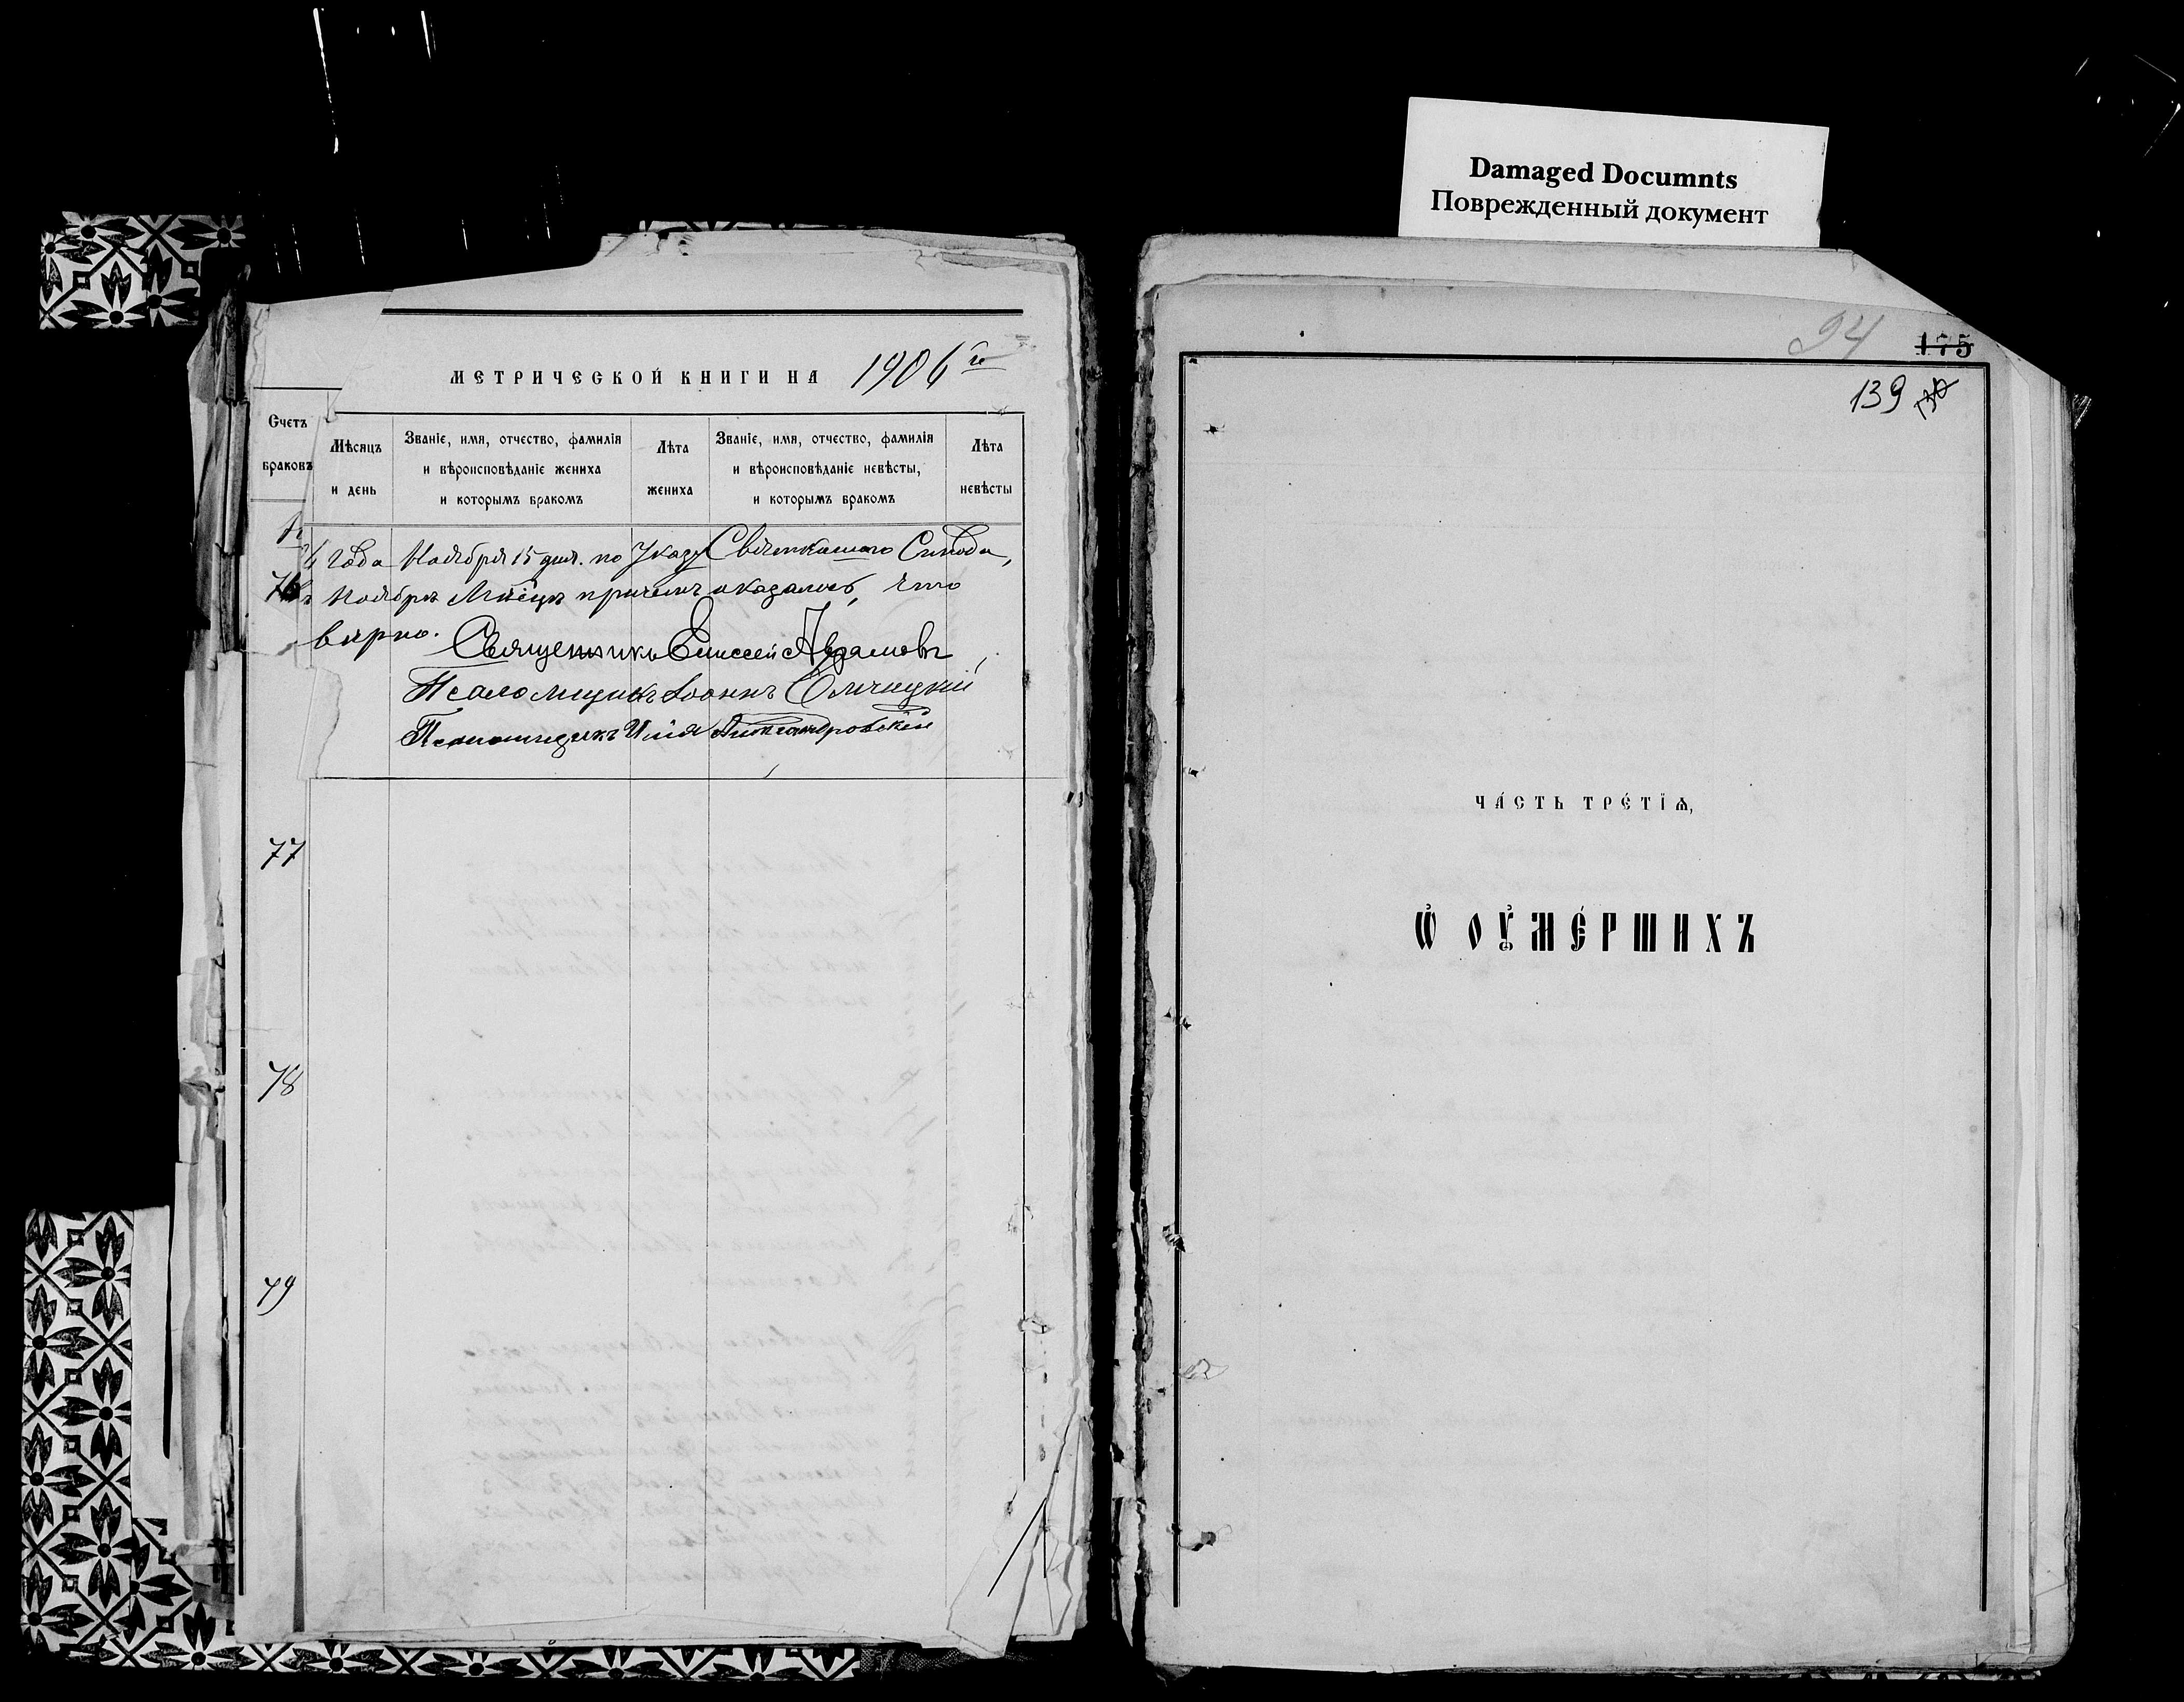 Damaged Documnts
Поврежденный документ
МЕТРИЧЕСКОЙ КНИГИ НА 1906 го
Счетъ браковъ
Мѣсяцъ и день
Званіе, имя, отчество, фамилія и вѣроисповѣданіе жениха и которымъ бракомъ
Лѣта жениха
Званіе, имя, отчество, фамилія и вѣроисповѣданіе невѣсты, и которымъ бракомъ
Лѣта невѣсты
года Ноября 15 дня. по Указу Святѣйшаго Синода,
76
Ноябрь Мѣсяцъ причемъ оказалось, что
вѣрно.
Священникъ Елиссей Авраамовъ
Псаломщикъ Іоаннъ
Псаломщикъ Илія Александровскій
77
78
79
94 175
139
ЧА́СТЬ ТРЕ́ТІѦ,
Ѡ҆ ОУ҆МЕ́РШИХЪ